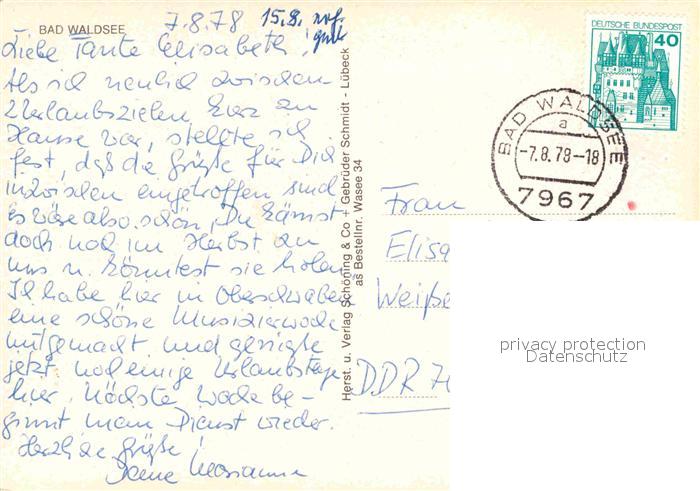 BAD WALDSEE
7.8.78
15.8.
Liebe Tante Elisabeth!
Als ich neulich zwischen
Urlaubszielen kurz zu
Hause war, stellte ich
fest, daß die für Dich
inzwischen eingetroffen sind
es wäre also schön, Du kämst
doch noch im Herbst zu
uns u. könntest sie holen.
Ich habe hier in Oberschwaben
eine schöne Musizierwoche
mitgemacht und genieße
jetzt noch einige Urlaubstage
hier. Nächste Woche be-
ginnt man Dienst wieder.
Herzliche Grüße!
Deine Marianne
Herst. u. Verlag Schöning & Co + Gebrüder Schmidt - Lübeck
as Bestellnr. Wasee 34
DEUTSCHE BUNDESPOST
40
BAD WALDSEE
a
-7.8.78-18
7967
Frau
Elisa
Weiße
DDR 70
privacy protection
Datenschutz